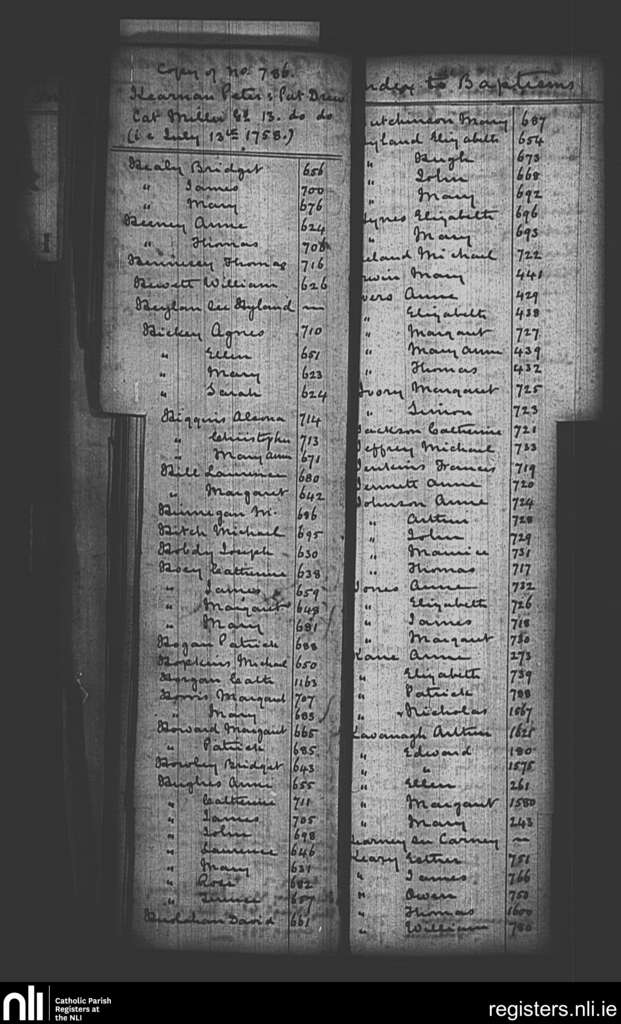 Copy of No. 786.
Kearnan Peter & Pat Drew
Cat Miller Gd 13. do do
(i e July 13th 1758.)
Healy Bridget 656
" James 700
" Mary 676
Heeney Anne 624
" Thomas 708
Hennessy Thomas 716
Hewett William 626
Heylan see Hyland —
Hickey Agnes 710
" Ellen 651
" Mary 623
" Sarah 624
Higgins Alcona 714
" Christopher 713
" Mary Anne 671
Hill Laurence 680
" Margaret 642
Hinnegan Wm. 686
Hitch Michael 695
Hobdy Joseph 630
Hoey Catherine 638
" James 659
" Margaret 648
" Mary 681
Hogan Patrick 688
Hopkins Michael 650
Horgan Cath 1163
Horris Margaret 707
" Mary 683
Howard Margaret 665
" Patrick 685
Howley Bridget 643
Hughes Anne 655
" Catherine 711
" James 705
" John 698
" Laurence 646
" Mary 631
" Rose 682
" Terence 657
Hulohan David 661
ndex to Baptisms
utchinson Mary 687
yland Elizabeth 654
" Hugh 673
" John 668
" Mary 692
Hynes Elizabeth 696
" Mary 693
eland Michael 722
rwin Mary 441
vers Anne 429
" Elizabeth 438
" Margaret 727
" Mary Anne 439
" Thomas 432
Ivory Margaret 725
" Simon 723
Jackson Catherine 721
Jeffrey Michael 733
Jenkins Frances 719
Jennett Anne 720
Johnson Anne 724
" Arthur 728
" John 729
" Maurice 731
" Thomas 717
Jones Anne 732
" Elizabeth 726
" James 718
" Margaret 730
Kane Anne 273
" Elizabeth 739
" Patrick 788
" Nicholas 1567
Kavanagh Arthur 1621
" Edward 180
" " 1575
" Ellen 261
" Margaret 1580
" Mary 243
Kearney see Carney —
Keary Esther 751
" James 766
" Owen 750
" Thomas 1600
" William 780
nli
Catholic Parish
Registers at
the NLI
registers.nli.ie